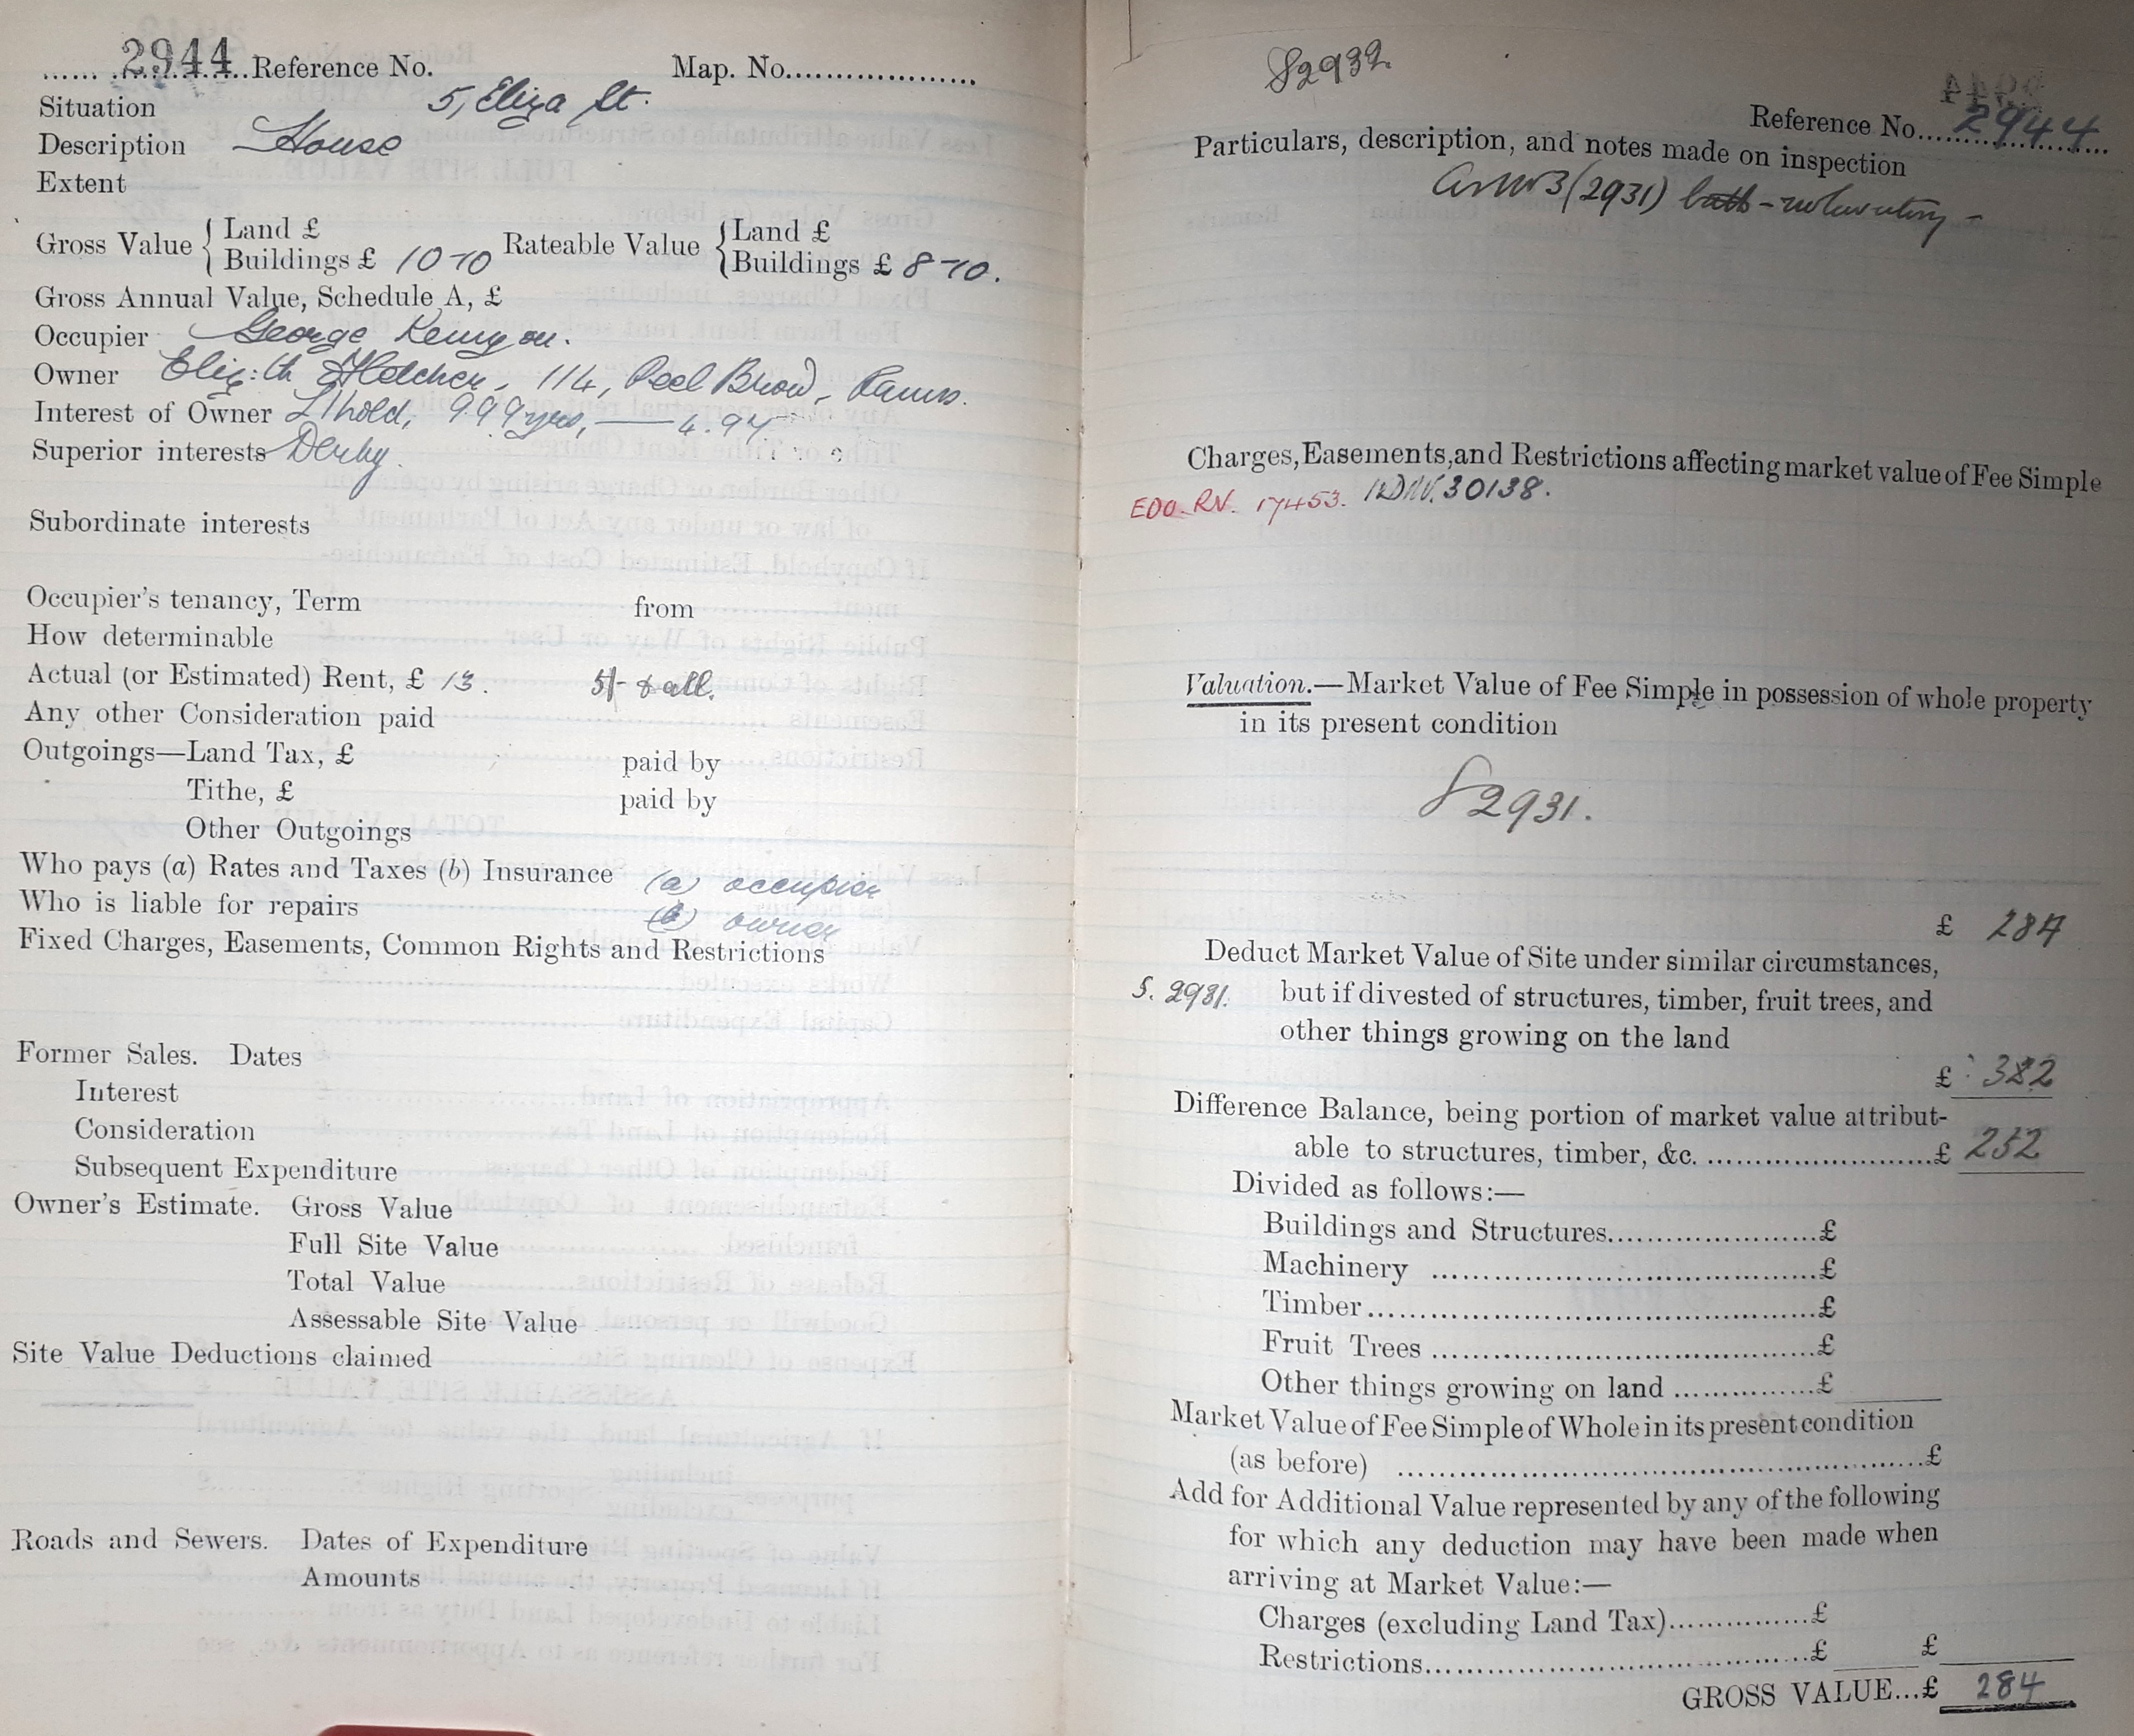 2944 Reference No. Map. No.
Situation 5, Eliza St.
Description House
Extent
Gross Value { Land £
Buildings £ 10-10 Rateable Value { Land £
Buildings £ 8-10.
Gross Annual Value, Schedule A, £
Occupier George Kenyon.
Owner Eliz:th Fletcher, 114, Peel Brow, Rams.
Interest of Owner L/hold, 999 yrs, — 4.94
Superior interests Derby.
Subordinate interests
Occupier's tenancy, Term from
How determinable
Actual (or Estimated) Rent, £ 13. 5/- & all.
Any other Consideration paid
Outgoings—Land Tax, £ paid by
Tithe, £ paid by
Other Outgoings
Who pays (a) Rates and Taxes (b) Insurance (a) occupier
Who is liable for repairs (b) owner
Fixed Charges, Easements, Common Rights and Restrictions
Former Sales. Dates
Interest
Consideration
Subsequent Expenditure
Owner's Estimate. Gross Value
Full Site Value
Total Value
Assessable Site Value
Site Value Deductions claimed
Roads and Sewers. Dates of Expenditure
Amounts
2932
Reference No. 2944
Particulars, description, and notes made on inspection
(2931) bath - no lavatory -
Charges, Easements, and Restrictions affecting market value of Fee Simple
EDO. RN. 17453. 30138.
Valuation.—Market Value of Fee Simple in possession of whole property
in its present condition
S 2931.
£ 284
Deduct Market Value of Site under similar circumstances,
S. 2931. but if divested of structures, timber, fruit trees, and
other things growing on the land
£
Difference Balance, being portion of market value attribut-
able to structures, timber, &c. £ 252
Divided as follows:—
Buildings and Structures £
Machinery £
Timber £
Fruit Trees £
Other things growing on land £
Market Value of Fee Simple of Whole in its present condition
(as before) £
Add for Additional Value represented by any of the following
for which any deduction may have been made when
arriving at Market Value:—
Charges (excluding Land Tax) £
Restrictions £ £
GROSS VALUE...£ 284